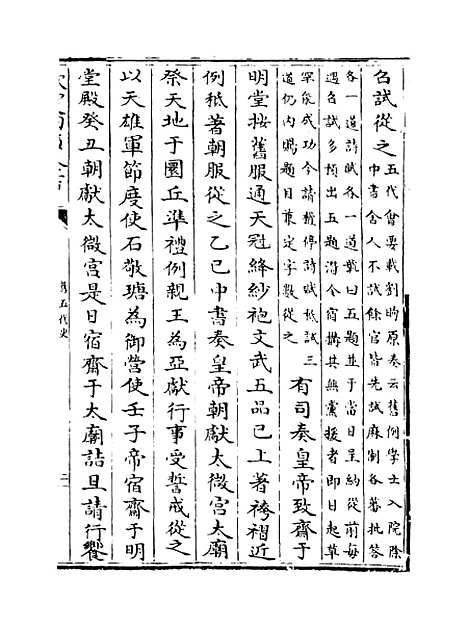 召試從之
五代會要載劉昫原奏云舊例學士入院除
中書舍人不試餘官皆先試麻制各蕃批答
各一道詩賦各一道號曰五題並于當日呈納從前每
遇召試多預出五題潛令宿搆其無黨援者即日起草
罕能成功今請權停詩賦祗試三
道仍內賜題目兼定字數從之
有司奏皇帝致齋于
明堂按舊服通天冠絳紗袍文武五品已上著袴褶近
例秪著朝服從之乙巳中書奏皇帝朝獻太微宮太廟
祭天地于圜丘準禮例親王為亞獻行事受誓戒從之
以天雄軍節度使石敬瑭為御營使壬子帝宿齋于明
堂殿癸丑朝獻太微宮是日宿齋于太廟詰旦請行饗
舊五代史